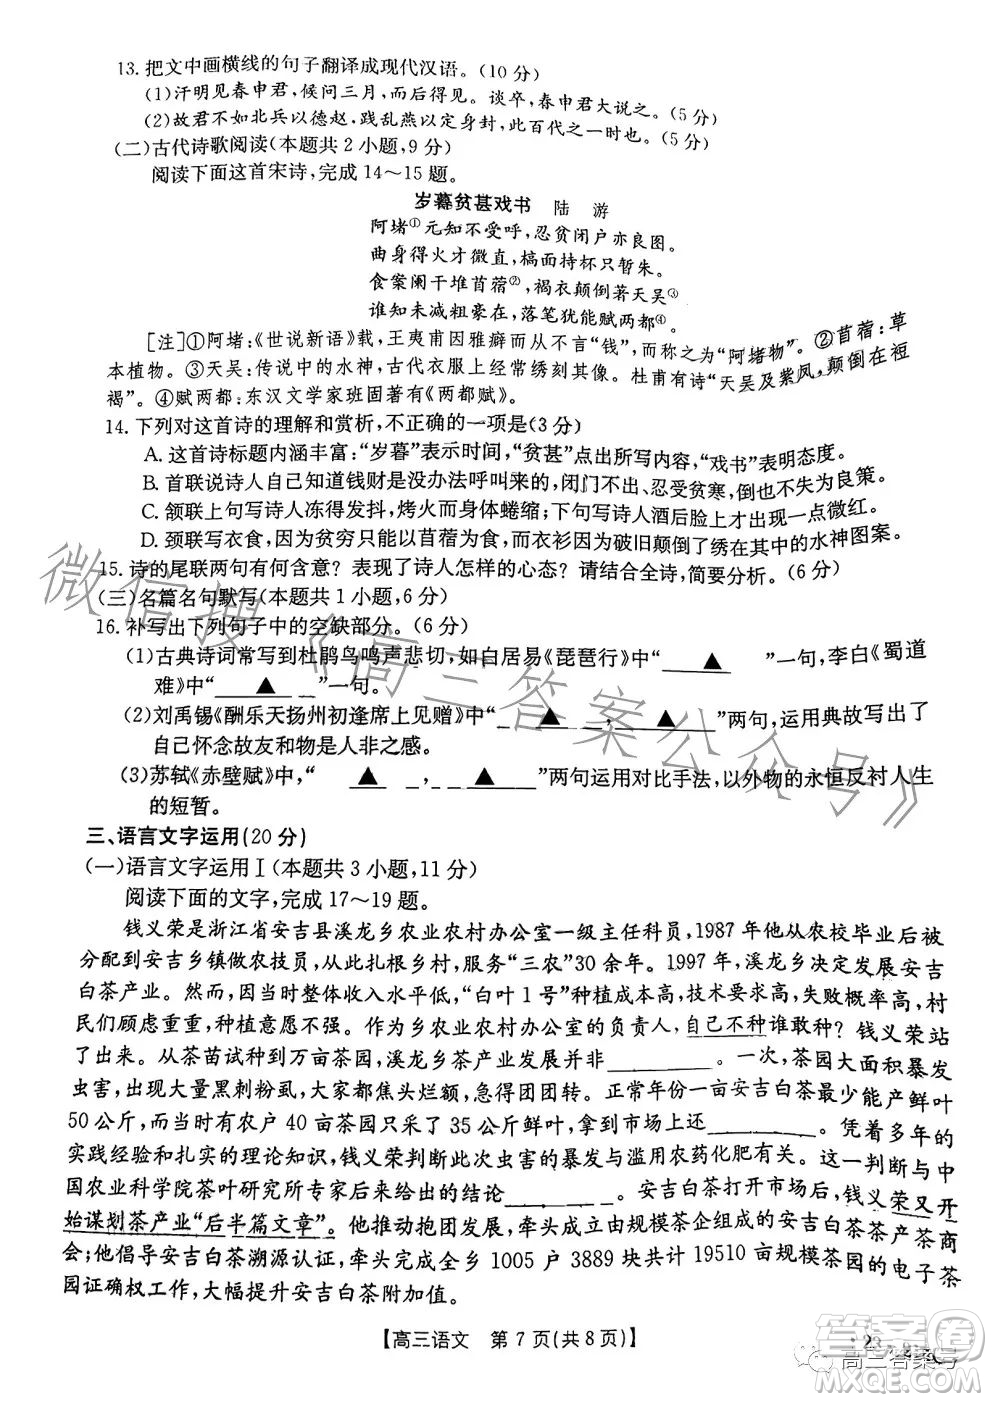 13. 把文中画横线的句子翻译成现代汉语。(10 分)
(1)汗明见春申君,候问三月,而后得见。谈卒,春申君大说之。(5 分)
(2)故君不如北兵以德赵,践乱燕以定身封,此百代之一时也。(5 分)
(二)古代诗歌阅读(本题共 2 小题,9 分)
阅读下面这首宋诗,完成 14~15 题。
岁暮贫甚戏书 陆 游
阿堵①元知不受呼,忍贫闭户亦良图。
曲身得火才微直,槁面持杯只暂朱。
食案阑干堆苜蓿②,褐衣颠倒著天吴③
谁知未减粗豪在,落笔犹能赋两都④。
[注]①阿堵:《世说新语》载,王夷甫因雅癖而从不言“钱”,而称之为“阿堵物”。②苜蓿:草
本植物。③天吴:传说中的水神,古代衣服上经常绣刻其像。杜甫有诗“天吴及紫凤,颠倒在裋
褐”。④赋两都:东汉文学家班固著有《两都赋》。
14. 下列对这首诗的理解和赏析,不正确的一项是(3 分)
A. 这首诗标题内涵丰富:“岁暮”表示时间,“贫甚”点出所写内容,“戏书”表明态度。
B. 首联说诗人自己知道钱财是没办法呼叫来的,闭门不出、忍受贫寒,也是一个良策。
C. 颔联上句写诗人冻得发抖,烤火时身体蜷缩;下句写诗人酒后脸上才出现一点微红。
D. 颈联写出,因为贫穷只能以苜蓿而食,而衣衫因为破旧颠倒了绣在其中的水神图案。
15. 诗的尾联两句有何含意?表现了诗人怎样的心态?请结合全诗,简要分析。(6 分)
(三)名篇名句默写(本题共 1 小题,6 分)
16. 补写出下列句子中的空缺部分。(6 分)
(1)古典诗词常写到杜鹃鸟鸣声悲切,如白居易《琵琶行》中“ ▲ ”一句,李白《蜀道
难》中“ ▲ ”一句。
(2)刘禹锡《酬乐天扬州初逢席上见赠》中“ ▲ , ▲ ”两句,运用典故写出了
自己怀念故友和物是人非之感。
(3)苏轼《赤壁赋》中,“ ▲ , ▲ ”两句运用对比手法,以外物的永恒反衬人生
的短暂。
三、语言文字运用(20 分)
(一)语言文字运用Ⅰ(本题共 3 小题,11 分)
阅读下面的文字,完成 17~19 题。
钱义荣是浙江省安吉县溪龙乡农业农村办公室一级主任科员,1987 年他从农校毕业后被
分配到安吉乡镇做农技员,从此扎根乡村,服务“三农”30 余年。1997 年,溪龙乡决定发展安吉
白茶产业。然而,因当时整体收入水平低,“白叶 1 号”种植成本高,技术要求高,失败概率高,村
民们顾虑重重,种植意愿不强。作为乡农业农村办公室的负责人,自己不种谁敢种?钱义荣站
了出来。从茶苗试种到万亩茶园,溪龙乡茶产业发展并非________。一次,茶园出现爆发
虫害,出现大量黑刺粉虱,大家都焦头烂额,急得团团转。正常年份一亩安吉白茶能产鲜叶
50 公斤,而当时有农户 40 亩茶园只采了 35 公斤鲜叶,拿到场上________。凭着多年的
实践经验和扎实的理论知识,钱义荣判断此次虫害的暴发与滥用农药化肥有关。这一判断与中
国农业科学院茶叶研究所专家后来给出的结论________。安吉白茶打开市场后,钱义荣又开
始谋划茶产业“后半篇文章”。他推动抱团发展,牵头成立由规模茶企组成的安吉白茶茶产茶商
会;他倡导安吉白茶溯源认证,牵头完成全乡 1005 户 3889 块共计 19510 亩规模茶园的电子茶
园证确权工作,大幅提升安吉白茶附加值。
【高三语文 第 7 页(共 8 页)】
微信搜《高三答案公众号》
高三答案号